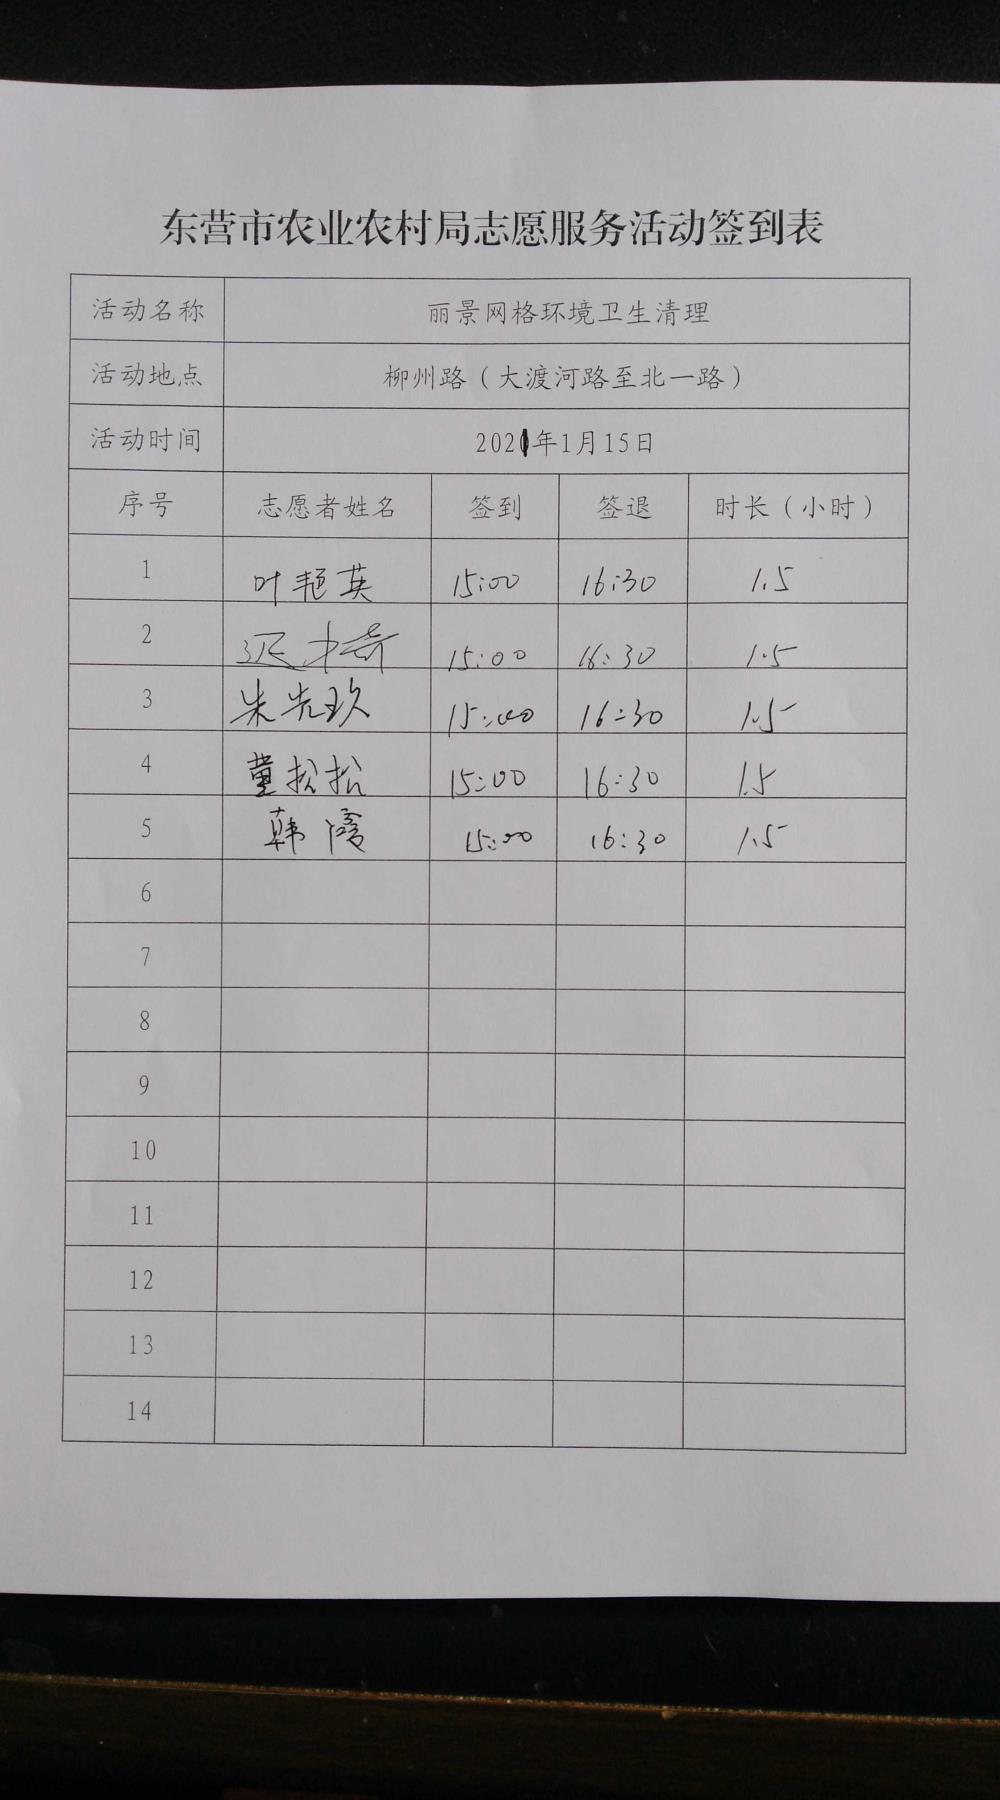 东营市农业农村局志愿服务活动签到表
活动名称 丽景网格环境卫生清理
活动地点 柳州路（大渡河路至北一路）
活动时间 2021年1月15日
序号 志愿者姓名 签到 签退 时长（小时）
1 叶艳英 15:00 16:30 1.5
2 15:00 16:30 1.5
3 朱先玖 15:00 16:30 1.5
4 董松松 15:00 16:30 1.5
5 韩霞 15:00 16:30 1.5
6
7
8
9
10
11
12
13
14